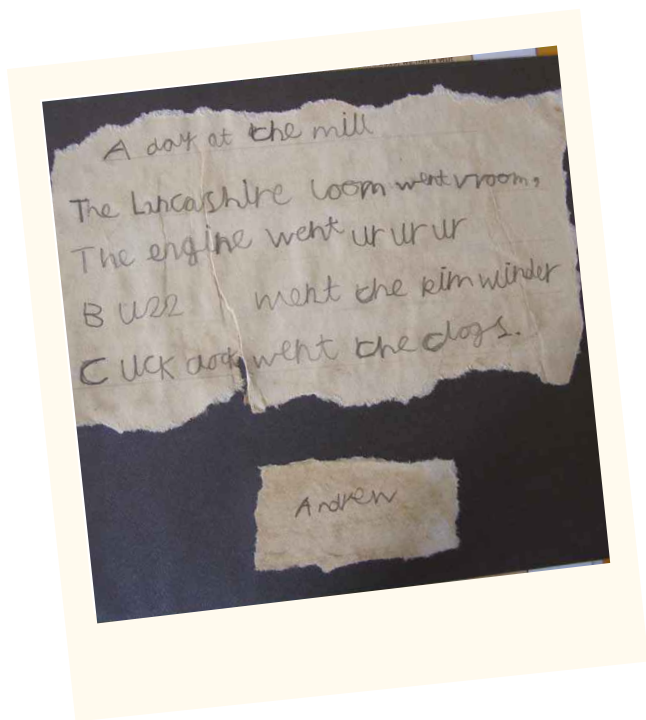 A day at the mill
The Lancashire loom went vroom,
The engine went ur ur ur
BUzz went the pirn winder
CUCK went the clogs.
Andrew